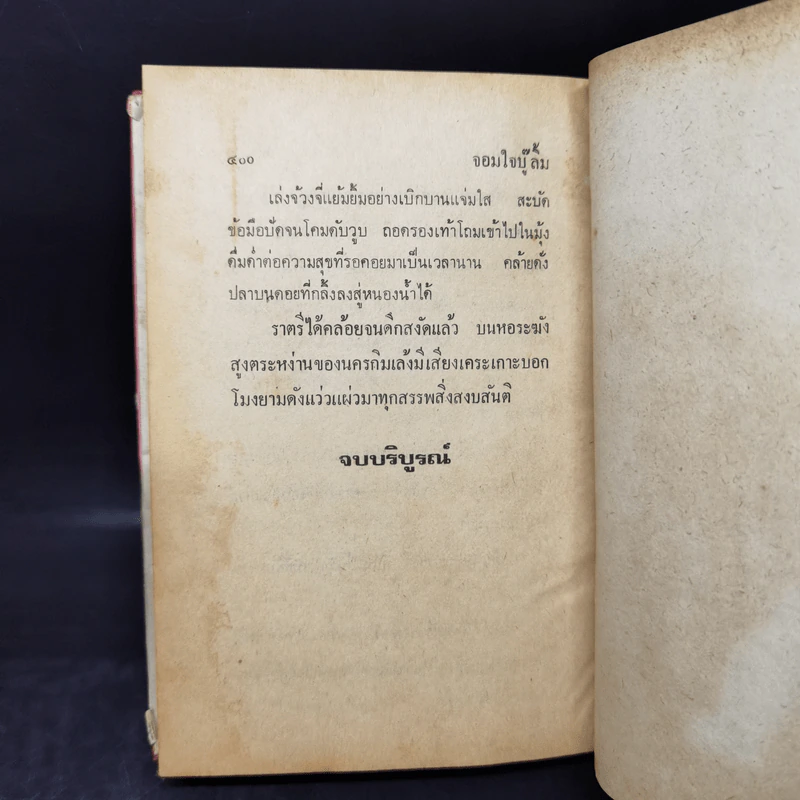 ๔๐๐ จอมใจบู๊ลิ้ม
เล่งจ้วงจี่แย้มยิ้มอย่างเบิกบานแจ่มใส สะบัด
ข้อมือปัดจนโคมดับวูบ ถอดรองเท้าโถมเข้าไปในมุ้ง
ดื่มด่ำต่อความสุขที่รอคอยมาเป็นเวลานาน คล้ายดั่ง
ปลาบนดอยที่กลิ้งลงสู่หนองน้ำได้
ราตรีได้คล้อยจนดึกสงัดแล้ว บนหอระฆัง
สูงตระหง่านของนครกิมเล้งมีเสียงเคระเกาะบอก
โมงยามดังแว่วแผ่วมาทุกสรรพสิ่งสงบสันติ
จบบริบูรณ์